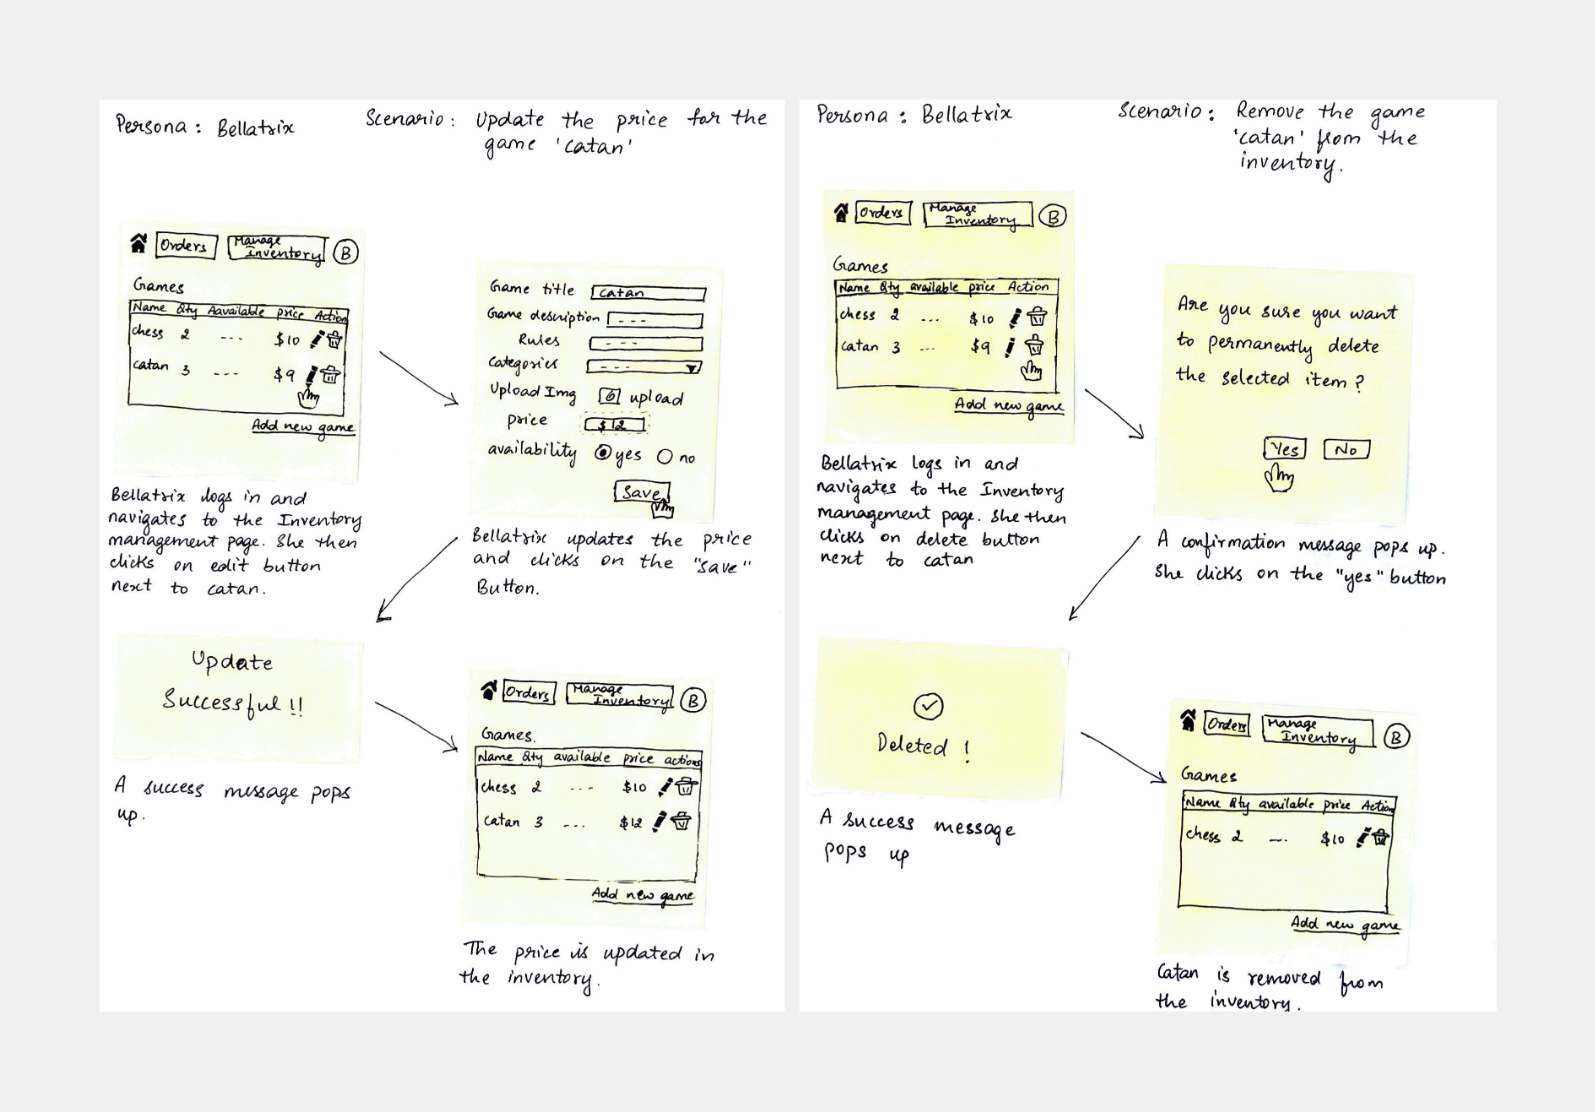 Persona: Bellatrix
Scenario: Update the price for the
game 'catan'
Orders
Manage
Inventory
B
Games
Name Qty Aavailable price Action
chess 2 --- $10
catan 3 --- $9
Add new game
Bellatrix logs in and
navigates to the Inventory
management page. She then
clicks on edit button
next to catan.
Game title catan
Game description ---
Rules ---
Categories ---
Upload Img upload
price $12
availability yes no
Save
Bellatrix updates the price
and clicks on the "save"
Button.
Update
Successful!!
A success message pops
up.
Orders
Manage
Inventory
B
Games.
Name Qty available price actions
chess 2 --- $10
catan 3 --- $12
Add new game
The price is updated in
the inventory.
Persona: Bellatrix
Scenario: Remove the game
'catan' from the
inventory.
Orders
Manage
Inventory
B
Games
Name Qty available price Action
chess 2 ... $10
catan 3 ... $9
Add new game
Bellatrix logs in and
navigates to the Inventory
management page. She then
clicks on delete button
next to catan
Are you sure you want
to permanently delete
the selected item?
Yes No
A confirmation message pops up.
She clicks on the "yes" button
Deleted!
A success message
pops up
Orders
Manage
Inventory
B
Games
Name Qty available price Action
chess 2 --- $10
Add new game
Catan is removed from
the inventory.